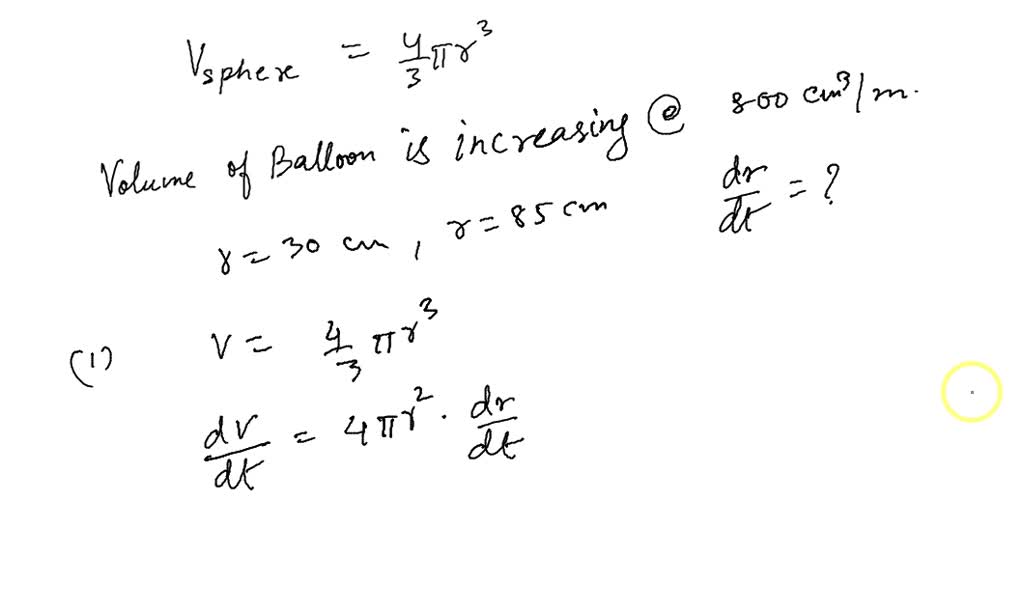 V_sphere = 4/3 πr³
Volume of Balloon is increasing @ 800 cm³/m.
r = 30 cm, r = 85 cm
dr/dt = ?
(1) V = 4/3 πr³
dV/dt = 4πr² · dr/dt